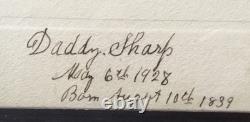 Daddy. Sharp
May 6th 1928
Born August 10th 1839